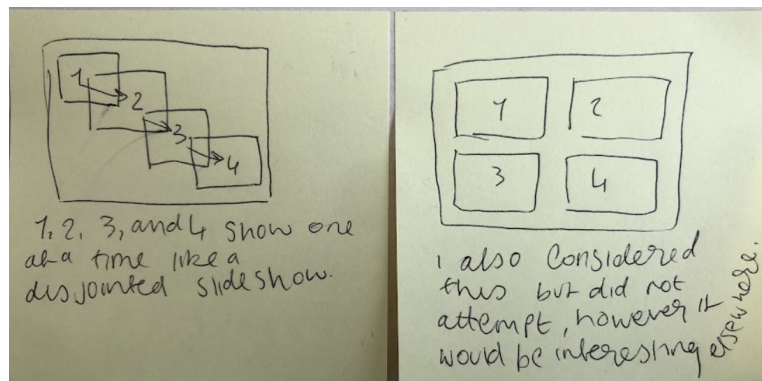 1
2
3
4
1, 2, 3, and 4 show one
at a time like a
disjointed slideshow.
1
2
3
4
i also considered
this but did not
attempt, however it
would be interesting elsewhere.